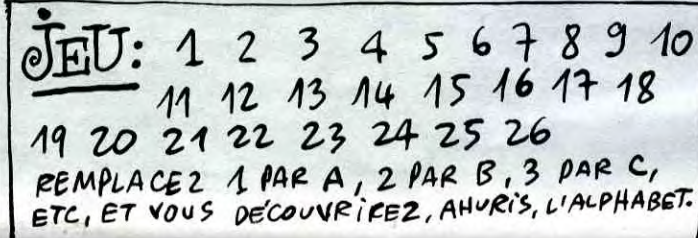 JEU: 1 2 3 4 5 6 7 8 9 10
11 12 13 14 15 16 17 18
19 20 21 22 23 24 25 26
REMPLACEZ 1 PAR A, 2 PAR B, 3 PAR C,
ETC, ET VOUS DÉCOUVRIREZ, AHURIS, L'ALPHABET.